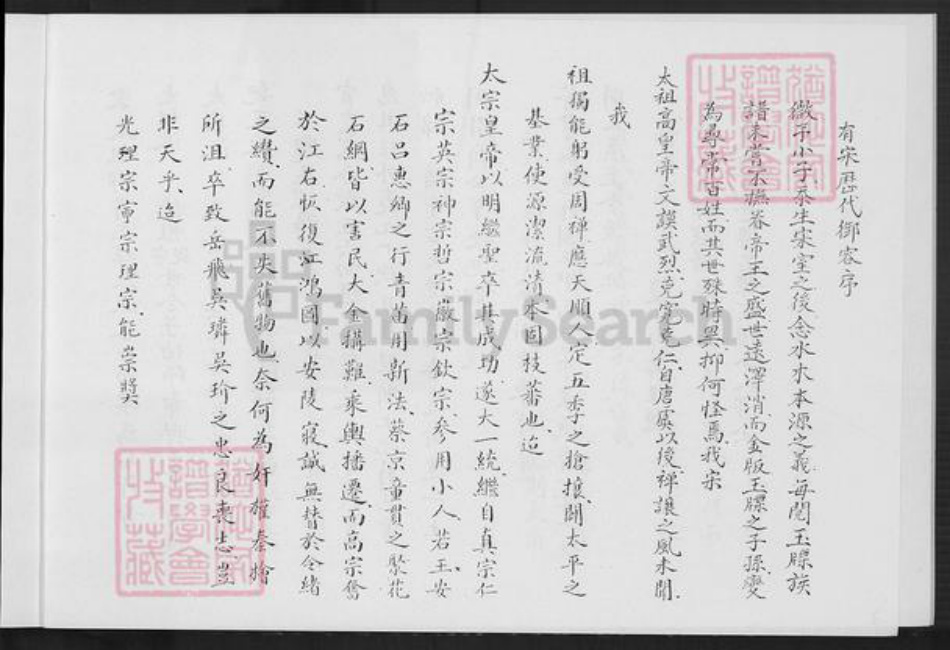 有宋歷代御容序
微予小子忝生宋室之後念水水本源之義每閱玉牒族
譜未嘗不撫眷帝王之盛世遠澤消而金版玉牒之子孫變
為尋常百姓而其世殊時異抑何怪焉我宋
太祖高皇帝文謨武烈克寬克仁自唐虞以後禪讓之風未聞
我
祖獨能躬受周禪應天順人定五季之搶攘開太平之
基業使源潔流清本固枝蕃也迨
太宗皇帝以明繼聖卒其成功遂大一統繼自真宗仁
宗英宗神宗哲宗徽宗欽宗參用小人若王安
石呂惠卿之行青苗用新法蔡京童貫之聚花
石綱皆以害民大金搆難乘輿播遷而高宗奮
於江右恢復江鴻國以安陵寢誠無替於令緒
之纘而能不失舊物也奈何為奸權秦檜
所沮卒致岳飛吳璘吳玠之忠良喪志豈
非天乎迨
光理宗寧宗理宗能崇獎
譜學會
收藏
譜學會
收藏
FamilySearch